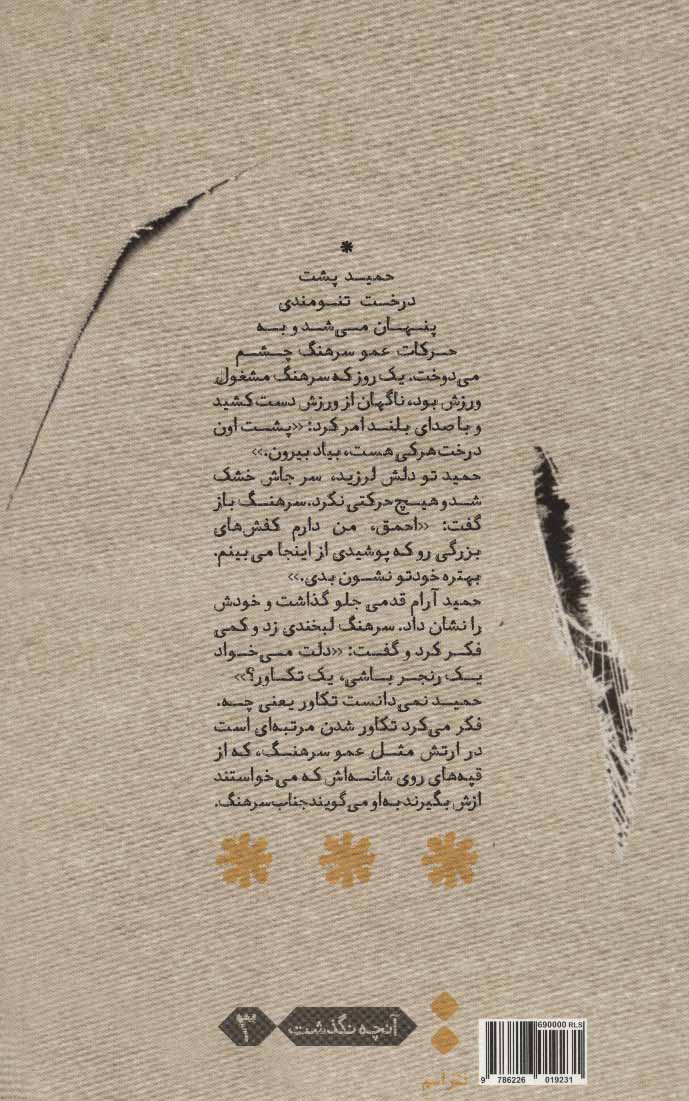 *
حمید پشت
درخت تنومندی
پنهان می‌شد و به
حرکات عمو سرهنگ چشم
می‌دوخت. یک روز که سرهنگ مشغول
ورزش بود، ناگهان از ورزش دست کشید
و با صدای بلند امر کرد: «پشت اون
درخت هر کی هست، بیاد بیرون.»
حمید تو دلش لرزید، سر جاش خشک
شد و هیچ حرکتی نکرد. سرهنگ باز
گفت: «احمق، من دارم کفش‌های
بزرگی رو که پوشیدی از اینجا می‌بینم.
بهتره خودتو نشون بدی.»
حمید آرام قدمی جلو گذاشت و خودش
را نشان داد. سرهنگ لبخندی زد و کمی
فکر کرد و گفت: «دلت می‌خواد
یک رنجر باشی، یک تکاور؟»
حمید نمی‌دانست تکاور یعنی چه.
فکر می‌کرد تکاور شدن مرتبه‌ای است
در ارتش مثل عمو سرهنگ، که از
قپه‌های روی شانه‌اش که می‌خواستند
ازش بگیرند به او می‌گویند جناب سرهنگ.
آنچه نگذشت ۳
690000 RLS
9 786226 019231